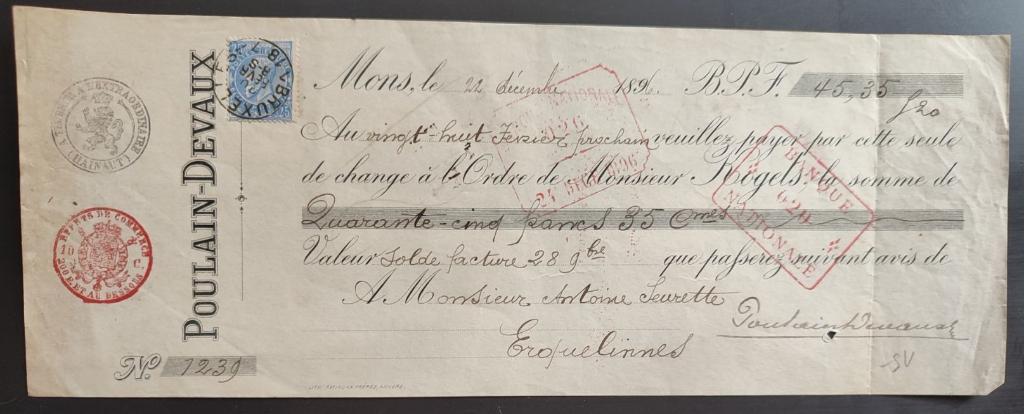 POULAIN-DEVAUX
TIMBRE A L'EXTRAORDINAIRE
(HAINAUT)
EFFETS DE COMMERCE
10 C
200 F. ET AU DESSOUS
BRUXELLES
Mons, le 22 décembre 1896 B.P.F. 45,35
f20
Au vingt-huit Février prochain veuillez payer par cette seule
de change à l'Ordre de Monsieur Rogels la somme de
Quarante-cinq francs 35 Cmes
Valeur Solde facture 28 9bre que passerez suivant avis de
A Monsieur Antoine Seurette
Poulain Devaux
Erquelinnes
No. 1239
BANQUE
620
NATIONALE
24 DEC 1896